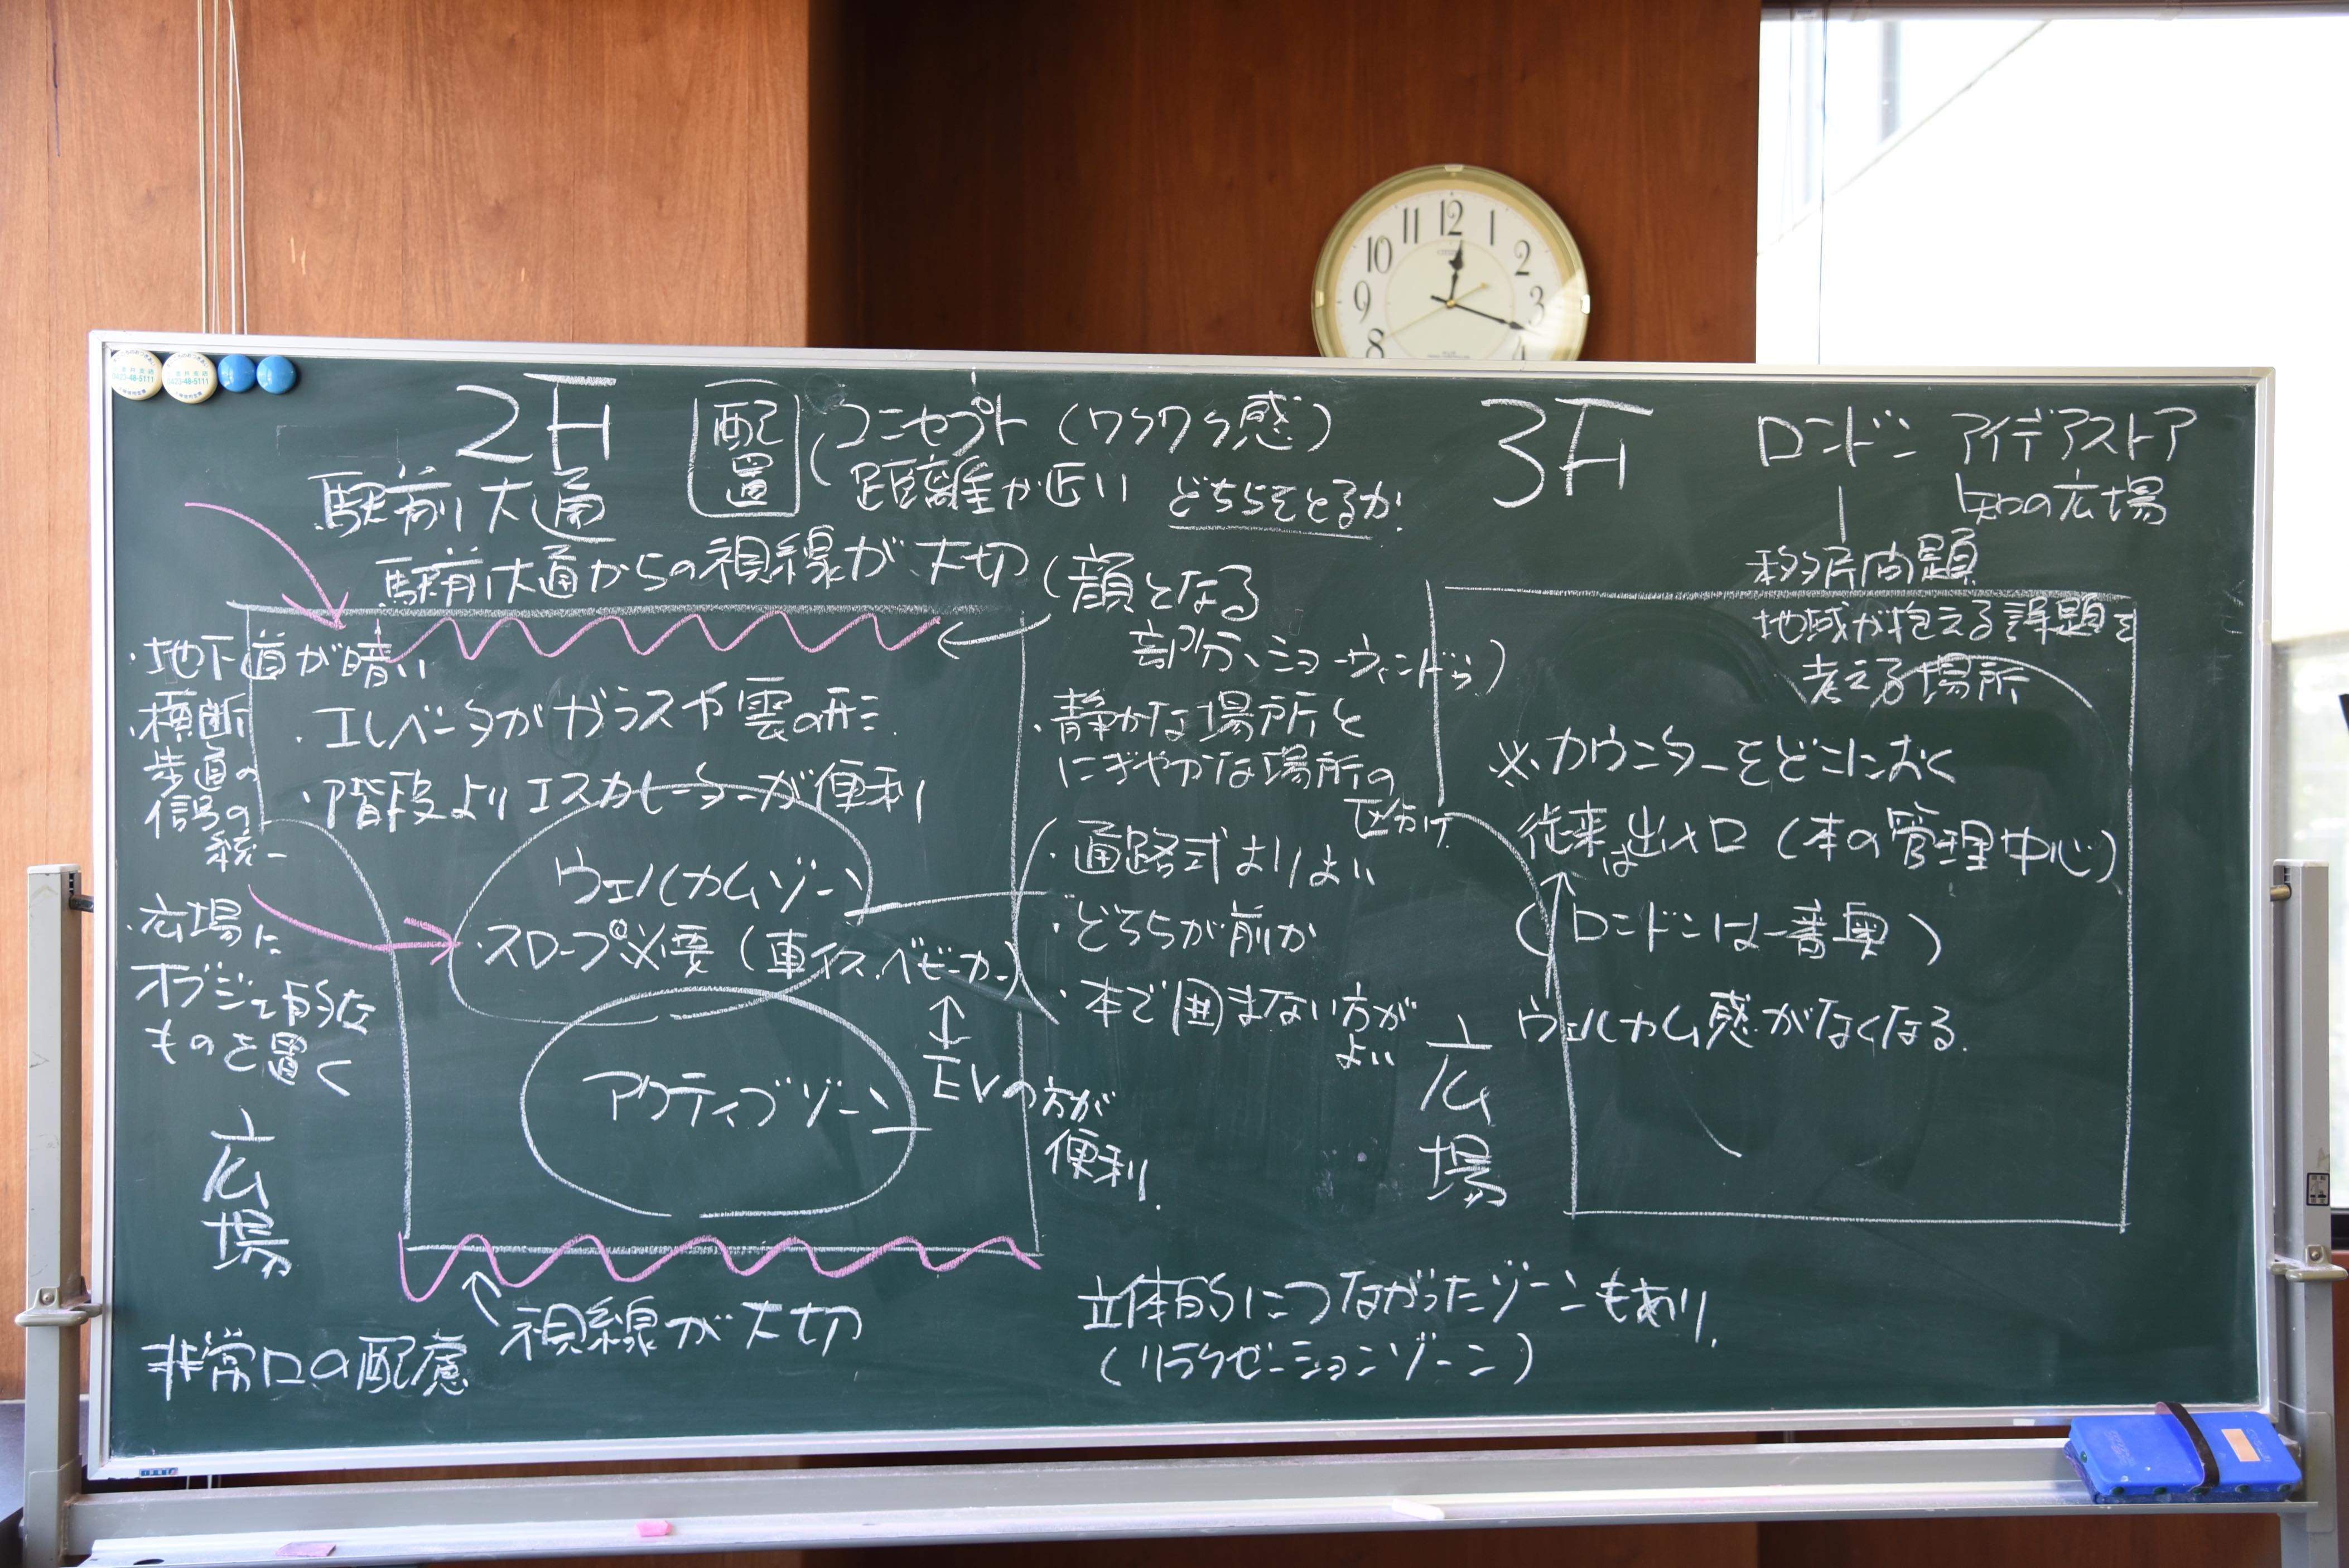 2F
配置
コンセプト（ワクワク感）
距離が近い どちらをとるか
駅前大通
駅前大通からの視線が大切
（顔となる
部分、ショーウィンドウ）
・地下道が暗い
・横断
歩道の
信号の
統一
・広場に
オブジェ的な
ものを置く
広場
非常口の配慮
・エレベータがガラスや雲の形
・階段よりエスカレーターが便利
ウェルカムゾーン
・スロープ必要（車イス、ベビーカー）
EVの方が
便利
アクティブゾーン
視線が大切
・静かな場所と
にぎやかな場所の
区分け
・通路式よりよい
・どちらが前か
・本で囲まない方が
よい
3F
ロンドン アイデアストア
知の広場
移民問題
地域が抱える課題を
考える場所
※カウンターをどこにおく
従来は出入口（本の管理中心）
（ロンドンは一番奥）
ウェルカム感がなくなる
広場
立体的につながったゾーンもあり
（リラクゼーションゾーン）
11 12 1
10 2
9 3
8 4
CITIZEN